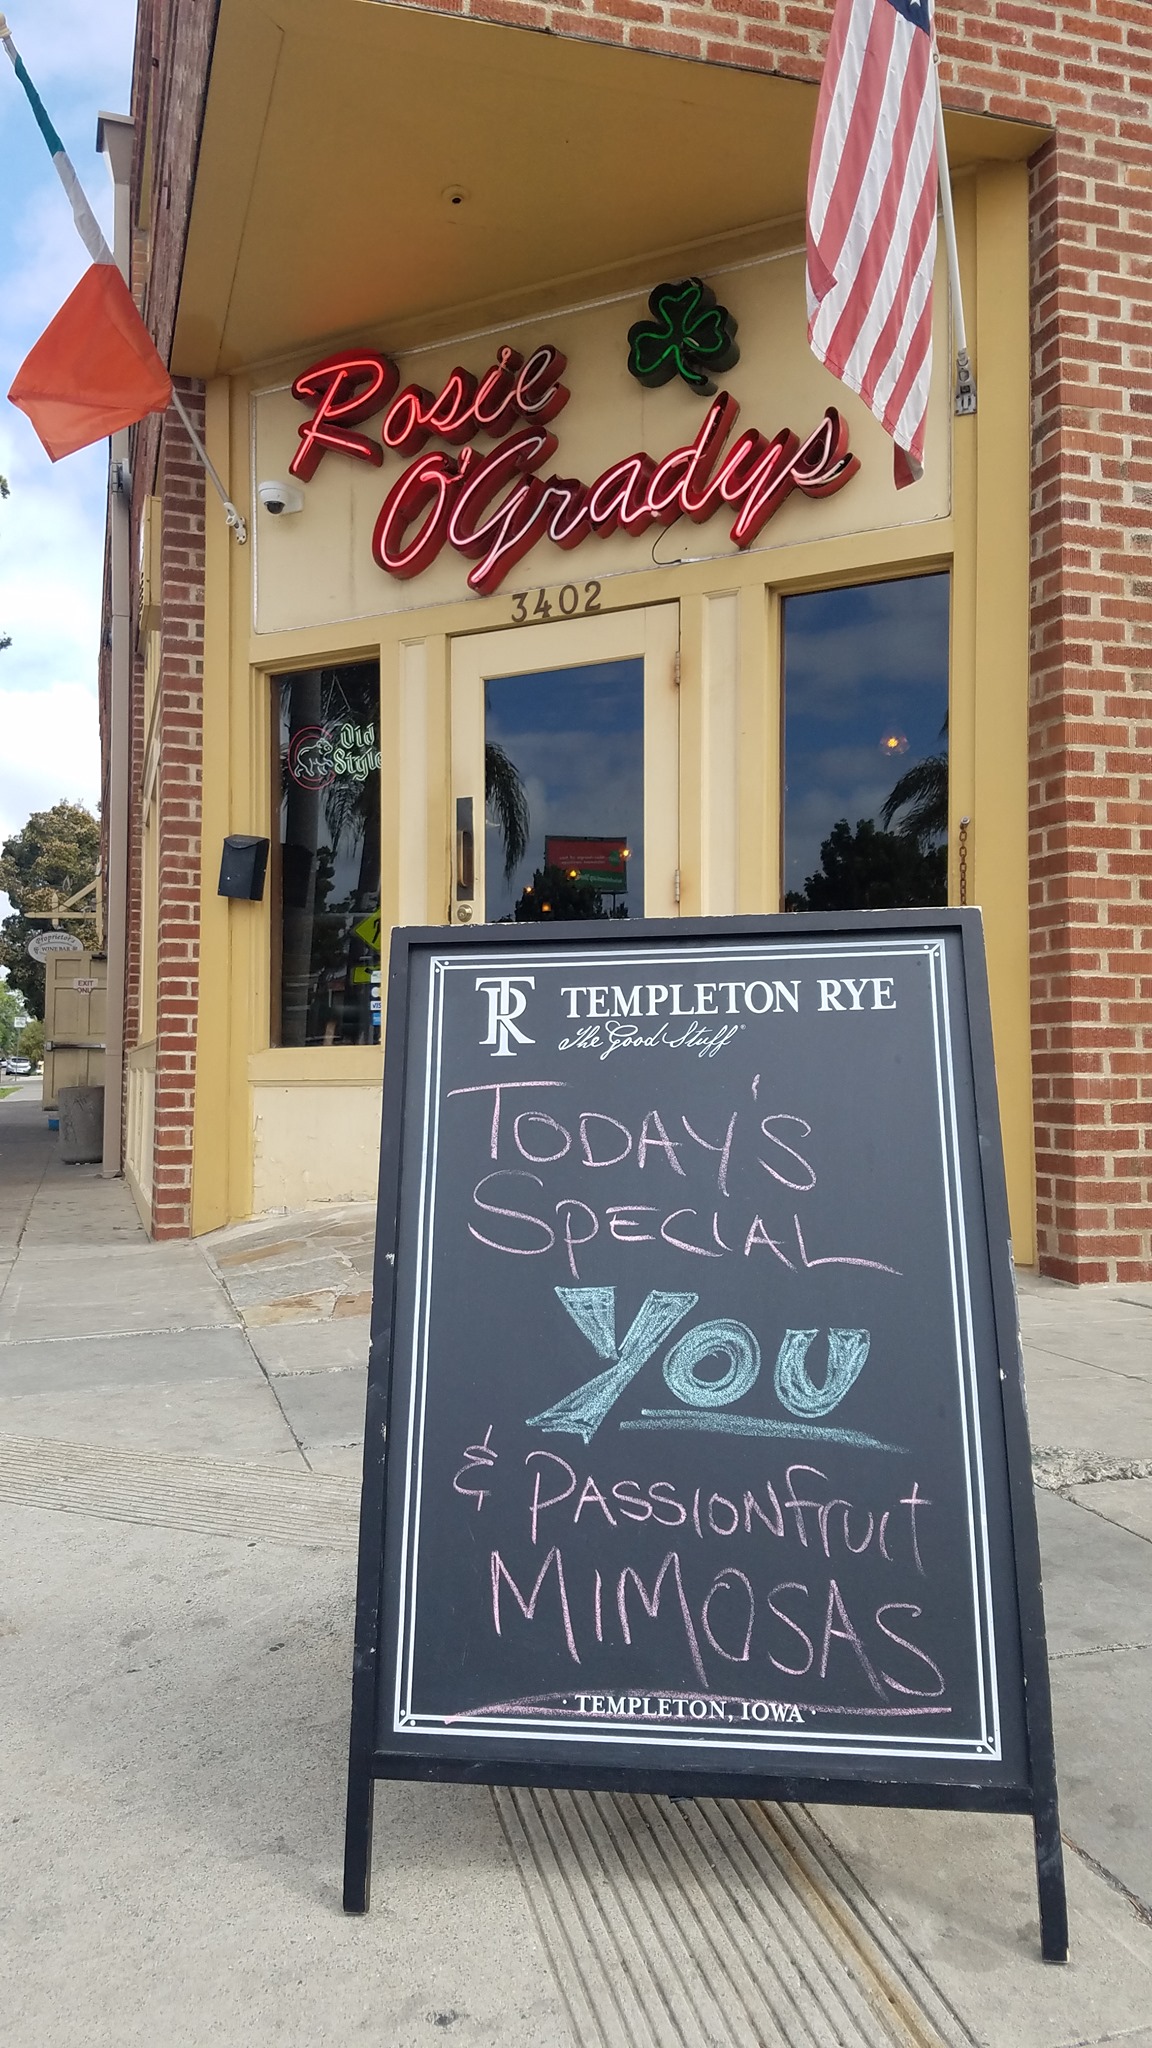 Rosie
O'Gradys
3402
Old
Style
Proprietor's
WINE BAR
EXIT
ONLY
TR TEMPLETON RYE
The Good Stuff
TODAY'S
SPECIAL
YOU
& PASSIONfruit
MIMOSAS
· TEMPLETON, IOWA ·